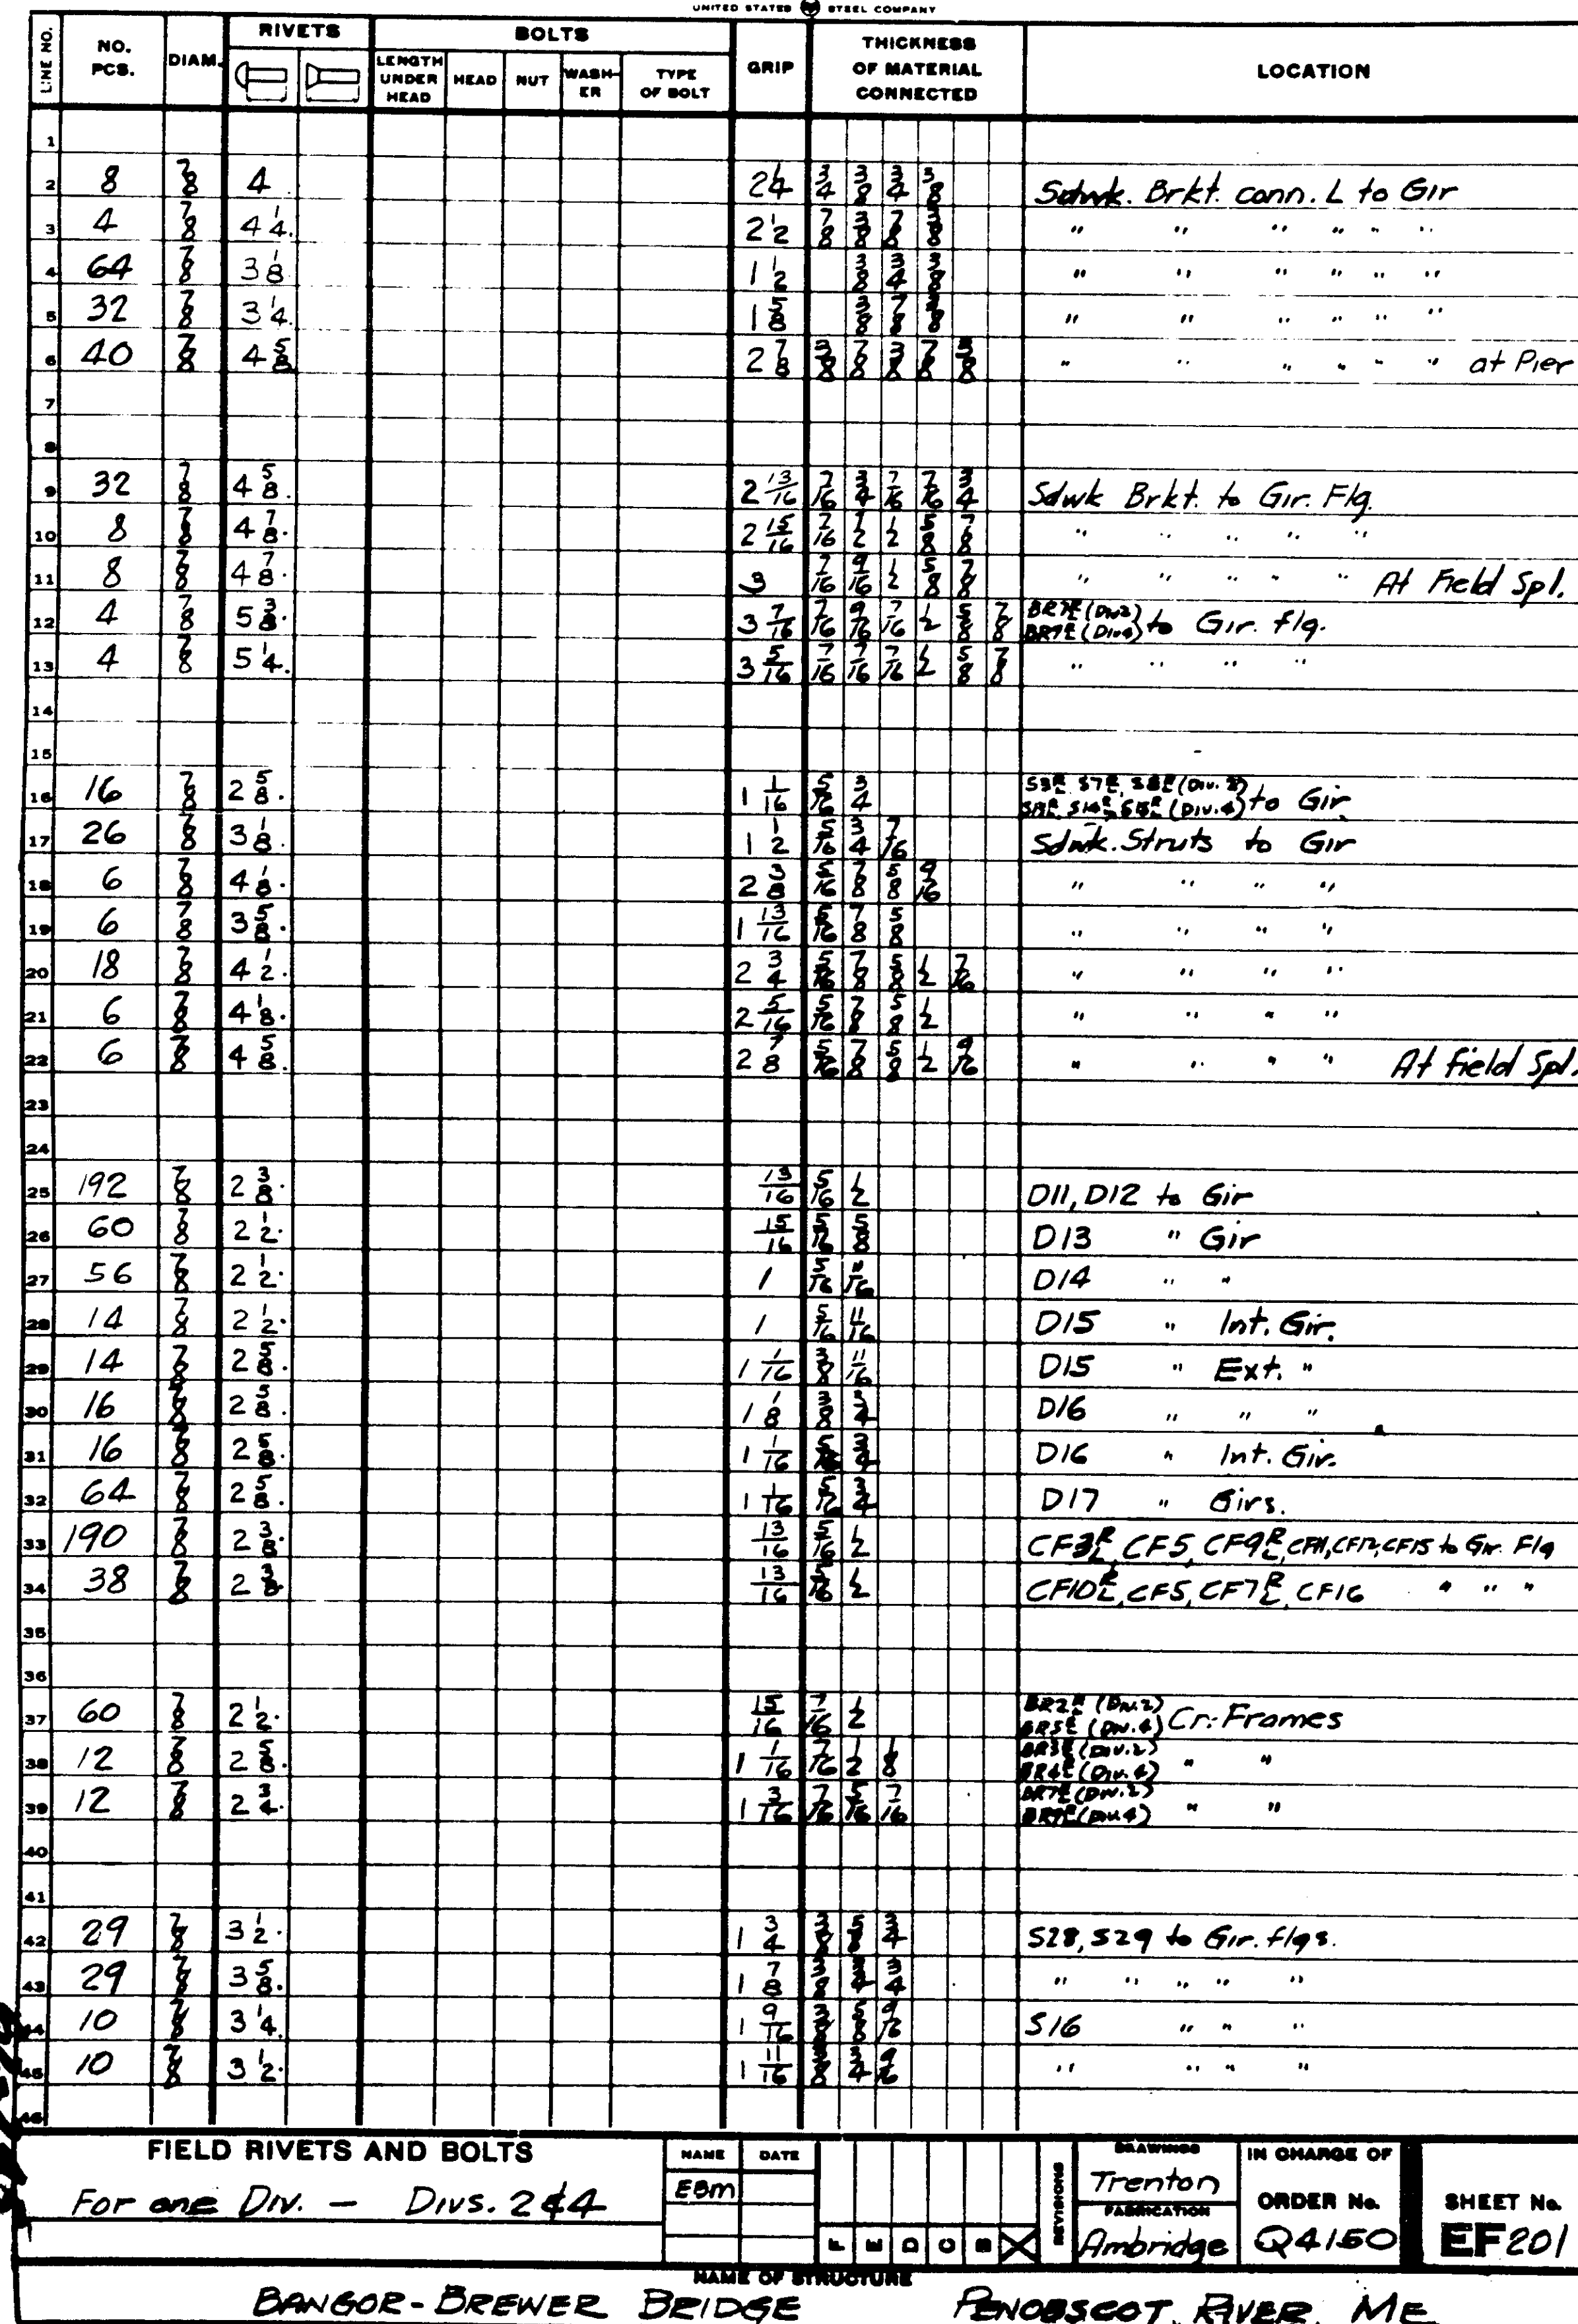 UNITED STATES STEEL COMPANY
LINE NO. NO. PCS. DIAM. RIVETS BOLTS GRIP THICKNESS OF MATERIAL CONNECTED LOCATION
LENGTH UNDER HEAD HEAD NUT WASH-ER TYPE OF BOLT
1
2 8 7/8 4 2 1/4 3/4 3/8 3/4 3/8 Sdwk. Brkt. conn. L to Gir
3 4 7/8 4 1/4. 2 1/2 7/8 3/8 7/8 3/8 " " " " " "
4 64 7/8 3 1/8 1 1/2 3/8 3/4 3/8 " " " " " "
5 32 7/8 3 1/4. 1 5/8 3/8 7/8 3/8 " " " " " "
6 40 7/8 4 5/8 2 7/8 3/8 7/8 3/8 7/8 3/8 " " " " " " at Pier
7
8
9 32 7/8 4 5/8. 2 13/16 7/16 3/4 7/16 7/16 3/4 Sdwk Brkt. to Gir. Flg.
10 8 7/8 4 7/8. 2 15/16 7/16 1/2 1/2 5/8 7/8 " " " " "
11 8 7/8 4 7/8. 3 7/16 9/16 1/2 5/8 7/8 " " " " " At Field Spl.
12 4 7/8 5 3/8. 3 7/16 7/16 9/16 7/16 1/2 5/8 7/8 BR7R/L (Div.2) BR9R/L (Div.4) to Gir. flg.
13 4 7/8 5 1/4. 3 5/16 7/16 7/16 7/16 1/2 5/8 7/8 " " " "
14
15
16 16 7/8 2 5/8. 1 1/16 5/16 3/4 (Div. 2) (Div.4) to Gir.
17 26 7/8 3 1/8. 1 1/2 5/16 3/4 7/16 Sdwk. Struts to Gir
18 6 7/8 4 1/8. 2 3/8 5/16 7/8 5/8 9/16 " " " "
19 6 7/8 3 5/8. 1 13/16 5/16 7/8 5/8 " " " "
20 18 7/8 4 1/2. 2 3/4 5/16 7/8 5/8 1/2 7/16 " " " "
21 6 7/8 4 1/8. 2 5/16 5/16 7/8 5/8 1/2 " " " "
22 6 7/8 4 5/8. 2 7/8 5/16 7/8 5/8 1/2 9/16 " " " " At field Spl.
23
24
25 192 7/8 2 3/8. 13/16 5/16 1/2 D11, D12 to Gir
26 60 7/8 2 1/2. 15/16 5/16 5/8 D13 " Gir
27 56 7/8 2 1/2. 1 5/16 11/16 D14 " "
28 14 7/8 2 1/2. 1 5/16 11/16 D15 " Int. Gir.
29 14 7/8 2 5/8. 1 1/16 3/8 11/16 D15 " Ext. "
30 16 7/8 2 5/8. 1 1/8 3/8 3/4 D16 " " "
31 16 7/8 2 5/8. 1 1/16 5/16 3/4 D16 " Int. Gir.
32 64 7/8 2 5/8. 1 1/16 5/16 3/4 D17 " Girs.
33 190 7/8 2 3/8. 13/16 5/16 1/2 CF3R/L, CF5, CF9R/L, CF11, CF12, CF15 to Gir. Flg
34 38 7/8 2 3/8. 13/16 5/16 1/2 CF10R/L, CF5, CF7R/L, CF16 " " "
35
36
37 60 7/8 2 1/2. 15/16 7/16 1/2 BR2R/L (Div.2) BR5R/L (Div.4) Cr. Frames
38 12 7/8 2 5/8. 1 1/16 7/16 1/2 1/8 BR3R/L (Div.2) BR4R/L (Div.4) " "
39 12 7/8 2 3/4. 1 3/16 7/16 5/16 7/16 BR7R/L (Div.2) BR9R/L (Div.4) " "
40
41
42 29 7/8 3 1/2. 1 3/4 3/8 5/8 3/4 S28, S29 to Gir. flgs.
43 29 7/8 3 5/8. 1 7/8 3/8 3/4 3/4 " " " " "
44 10 7/8 3 1/4. 1 9/16 3/8 5/8 9/16 S16 " " "
45 10 7/8 3 1/2. 1 11/16 3/8 3/4 9/16 " " " "
46
FIELD RIVETS AND BOLTS
For one Div. - Divs. 2 & 4
NAME DATE
EBM
F E D C B
REVISIONS
DRAWINGS
Trenton
FABRICATION
Ambridge
IN CHARGE OF
ORDER No.
Q4150
SHEET No.
EF201
NAME OF STRUCTURE
BANGOR-BREWER BRIDGE PENOBSCOT RIVER, ME